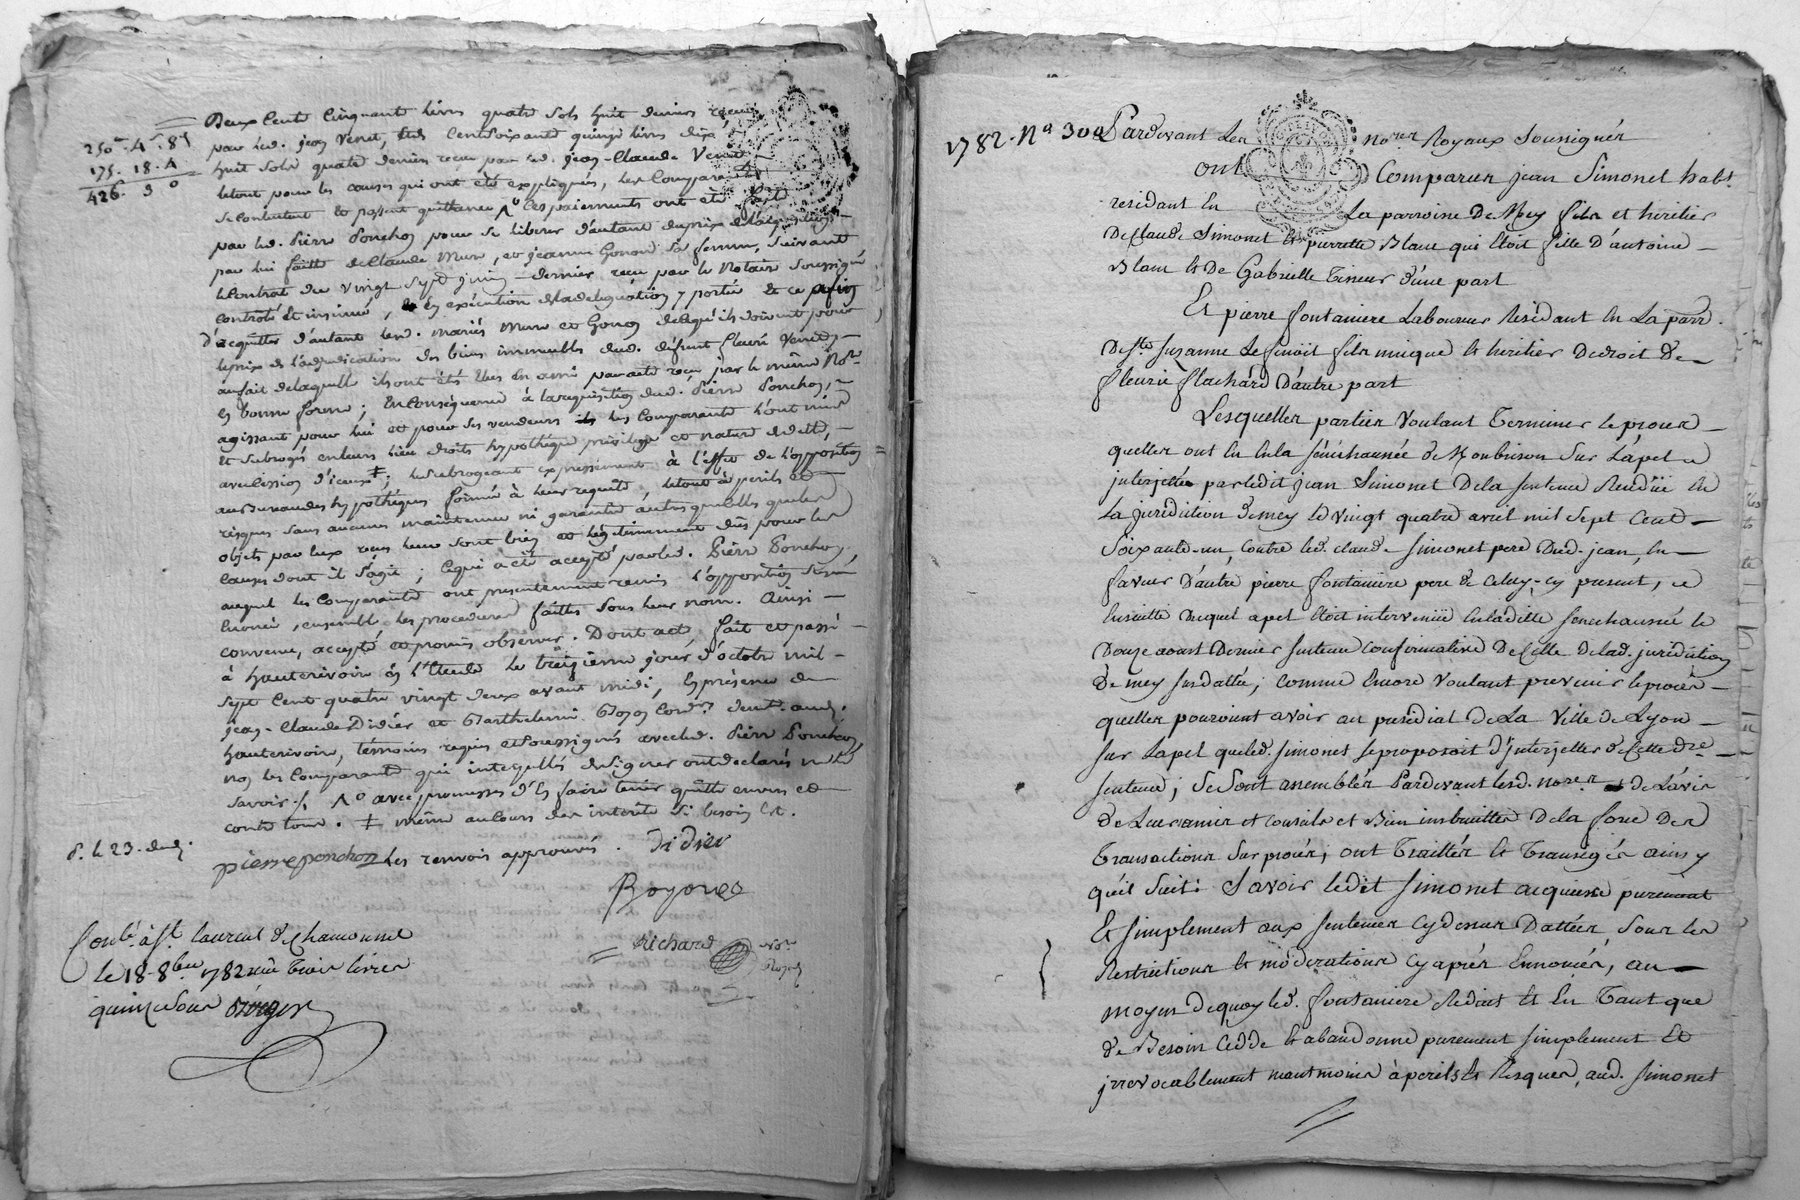 Deux Cent Cinquante livres quatre sols huit deniers reçue
par led. jean Venet, Cent soixante quinze livres dix
250 - 4 - 8
huit sols quatre deniers reçue par led. jean-Claude Venet
175. 18. 4
letout pour les causes qui ont été expliquées, les Comparants
426 3 0
Se contentent et passent quittance ces paiements ont été fait
par led. Pierre Ponchon pour se liberer d'autant du prix delaquisition
par lui faitte de Claude Mure, et jeanne Gonon Sa femme, Suivant
le Contrat du vingt Sept juin dernier reçu par le Notaire Soussigné
controlé et insinué, en exécution dela deleguation y portée et ce afin
d'acquitter d'autant lesd. mariés Mure et Gonon dece qu'ils doivent pour
le prix de l'adjudication des biens immeubles dud. défunt fleuri Venet,
au fait delaquelle ils ont été par acte reçu par le même No.re
en bonne forme; En Conséquence à la requisition dud. Pierre Ponchon,
agissant pour lui et pour ses vendeurs les Comparants L'ont mis
et subrogés en leurs lieu droits hypothèque privilege et nature de dette,
avec cession d'iceux ‡; le subrogeant expressement à l'effet de l'opposition
au Bureau des hypothéques formée à leur requête, letout à perils et
risques sans aucune maintenue ni garantie autres que les
objets par eux reçus leur sont bien et légitimement dûs pour les
causes dont il s'agit; Ce qui a été accepté par led. Pierre Ponchon,
auquel les Comparants ont presentement remis l'opposition
Enoncée, ensemble les procedures faittes sous leur nom. Ainsi
convenu, accepté et promis observer. Dont acte, fait et passé
à hauterivoir en l'Etude le treizieme jour d'octobre mil
Sept Cent quatre vingt deux avant midi, En présence de
jean-Claude Didier et Barthelemi Boyon Cord.rs dem.t aud.
hauterivoir, témoins requis et Soussignés avec led. Pierre Ponchon,
non les Comparants qui interpellés de signer ont declarés ne le
savoir ./. avec promesses d'en faire tenir quitte envers et
contre tous. ‡ même au cours des interêts si besoin est.
d. le 23. dud.
pierre ponchon Les renvois approuvés. Didier
Boyon
Richard No.re Royal
Con.lé à St. laurent de Chamousset
le 18 8bre 1782 trois livres
quinze sous
1782. N° 30
Pardevant Les No.res Royaux Soussignés
ont Comparus jean Simonet hab.t
residant En La parroisse De Mey fils et heritier
De Claude Simonet et pierrette Blanc qui Etoit fille D'antoine
Blanc et De Gabrielle Tineur d'une part
Et pierre fontaniere Laboureur Residant En La parr.
De S.te Suzanne Le fils unique et heritier De droit de
fleurie flachard D'autre part
Lesquelles parties Voulant Terminer le procès
quelles ont En la sénéchaussée de Monbrison sur L'apel
interjettée par ledit jean Simonet De la sentence Rendüe En
La juridiction de mey le vingt quatre avril mil sept Cent
Soixante-un, contre led. claude Simonet pere Dud. jean, En
faveur D'autre pierre fontaniere pere de Celuy-cy present, et
Ensuitte Duquel apel Etoit intervenüe En ladite senechaussée le
Douze aoust Dernier sentence confirmative De Celle De lad. juridiction
de mey susdattée; comme Encore Voulant prevenir le procès
quelles pouroient avoir au presidial De La Ville de Lyon
sur Lapel que led. Simonet se proposoit d'Interjetter de Cette d.re
sentence; se sont assemblés Pardevant lesd. no.res de L'avis
de Leurs amis et conseils et Bien instruittes De la force Des
Transactions sur procès; ont Traittés et Transigés ainsy
qu'il suit: Savoir ledit Simonet acquiesse purement
Et simplement aux sentences cydessus Dattées sous les
Restrictions et modérations cy après Ennoncés, au
moyen De quoy led. fontaniere Redoit et En Tant que
de Besoin Cedde et abandonne purement simplement Et
irrevocablement neantmoins à perils et Risques, aud. Simonet